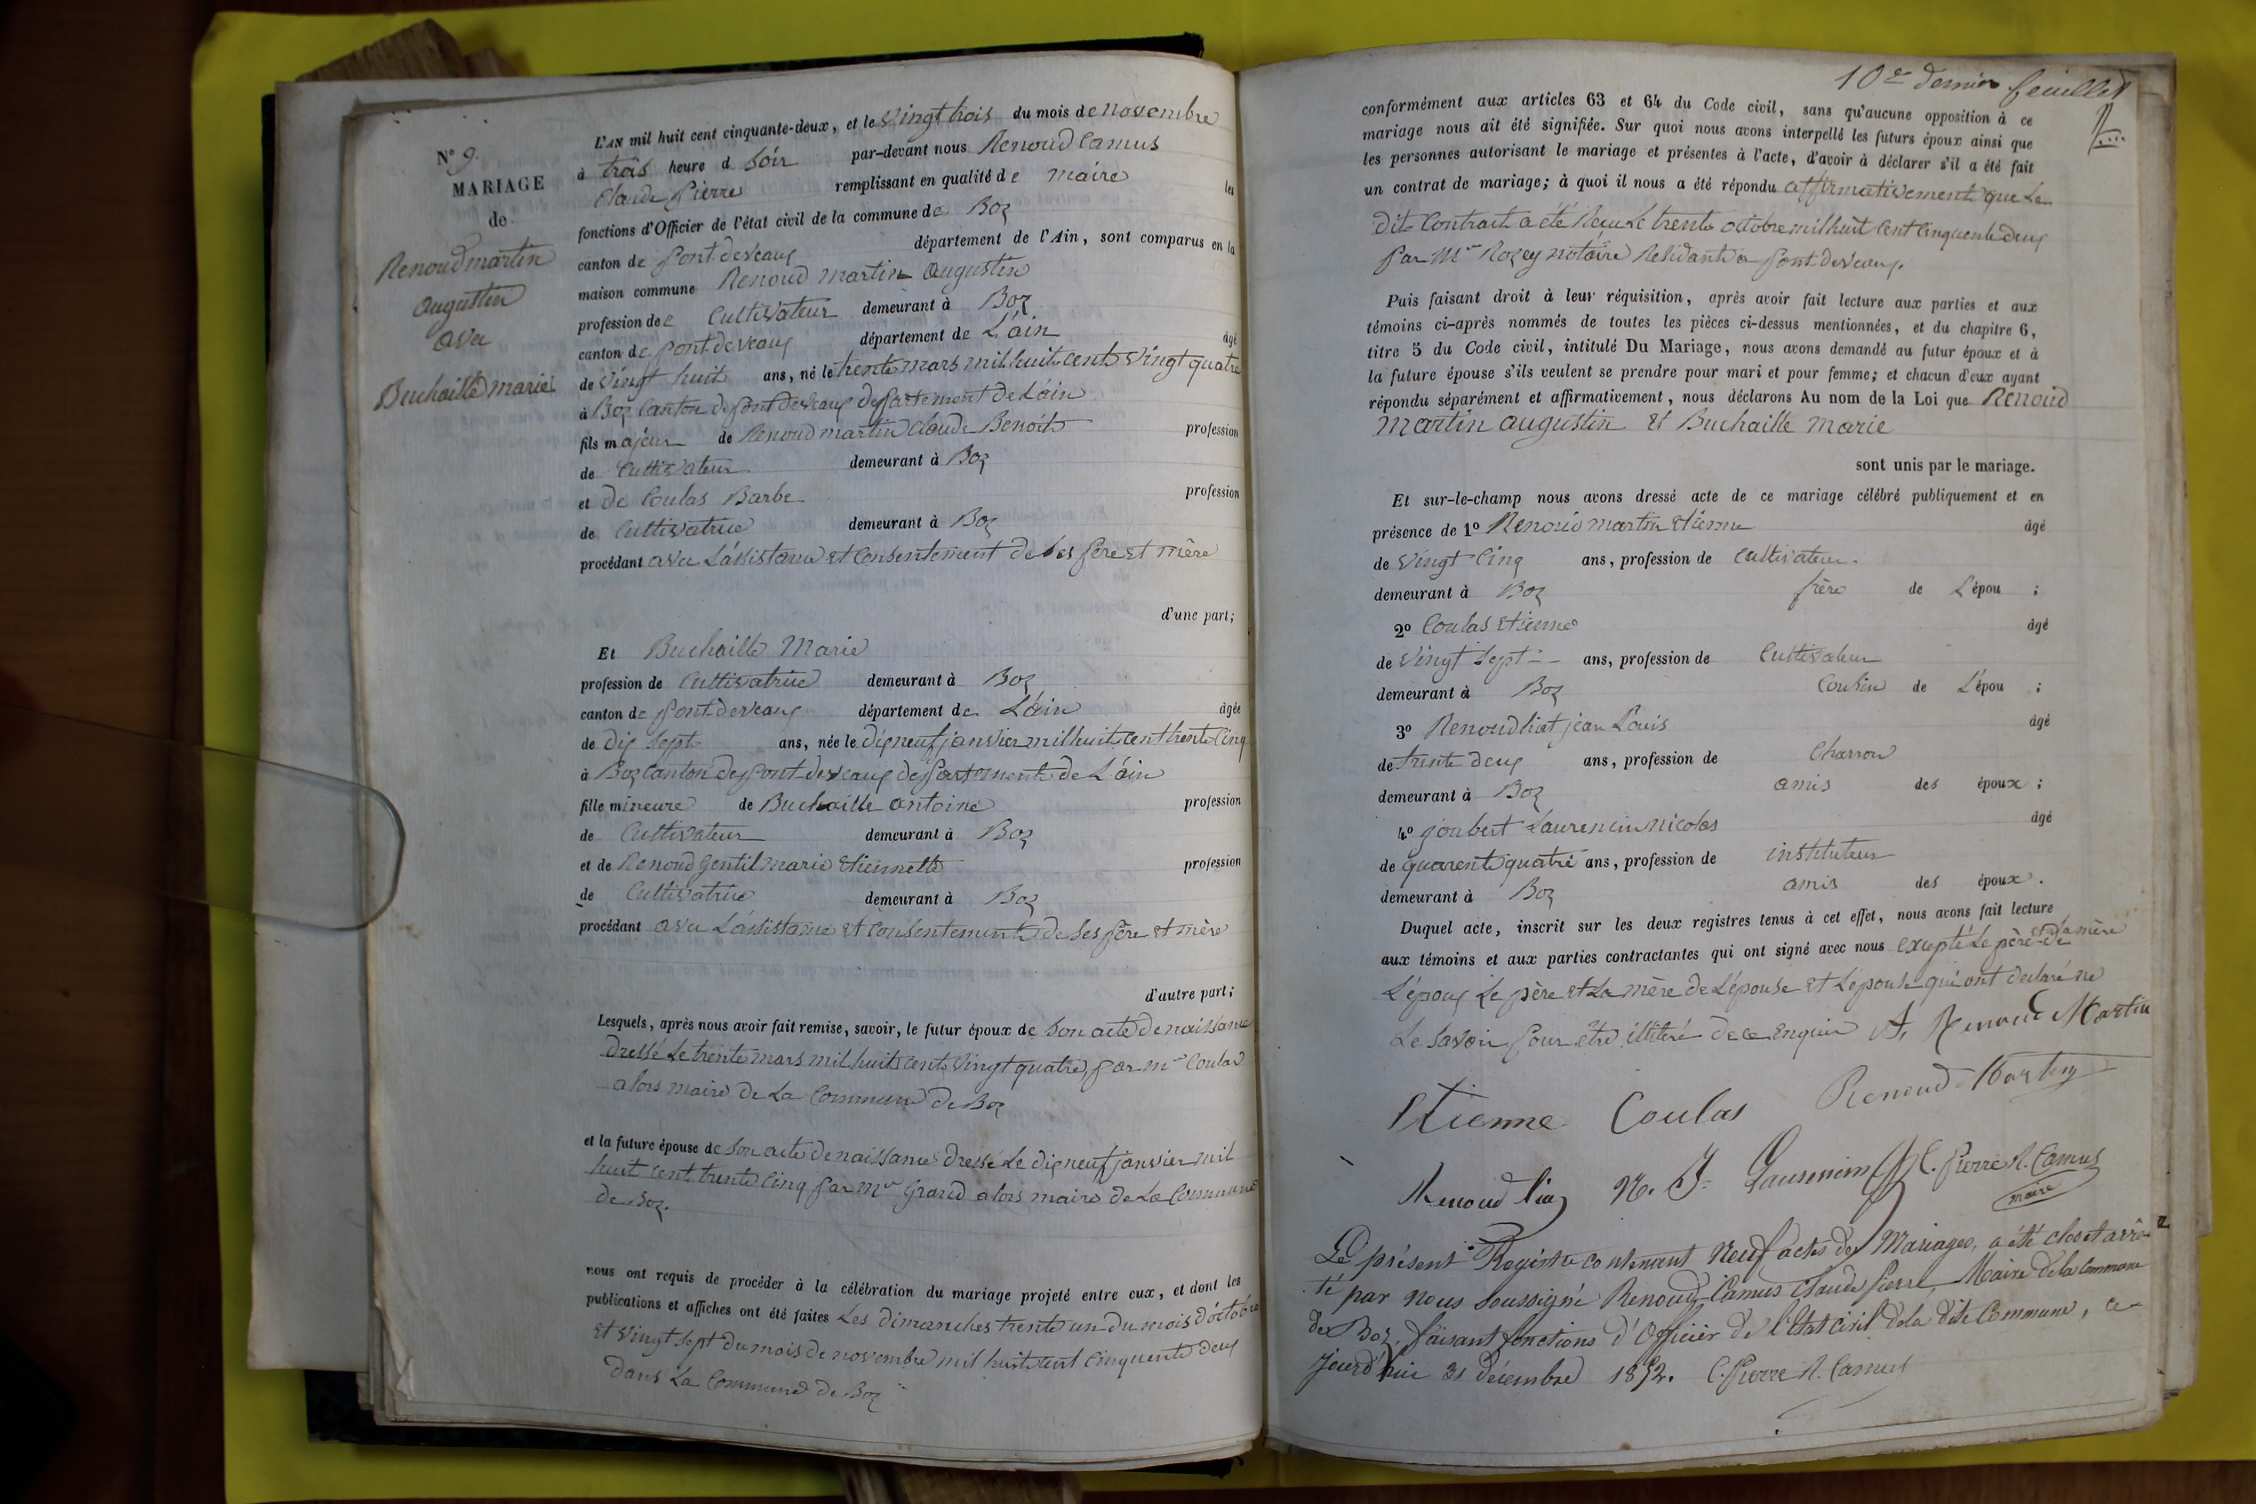 N° 9.
MARIAGE
de
Renoud martin
augustin
avec
Buchaille marie
L'AN mil huit cent cinquante-deux, et le vingt trois du mois de novembre
à trois heure d soir par-devant nous Renoud Camus
Claude Pierre remplissant en qualité de maire les
fonctions d'Officier de l'état civil de la commune de Boz
canton de pont devaux département de l'Ain, sont comparus en la
maison commune Renoud martin augustin
profession de cultivateur demeurant à Boz
canton de pont de vaux département de L'ain âgé
de vingt huit ans, né le trente mars mil huit cent vingt quatre
à Boz canton de pont devaux departement de L'ain
fils majeur de Renoud martin Claude Benoit profession
de cultivateur demeurant à Boz
et de Coulas Barbe profession
de cultivatrice demeurant à Boz
procédant avec L'assistance et consentement de ses père et mère
d'une part;
Et Buchaille Marie
profession de cultivatrice demeurant à Boz
canton de pont devaux département de L'ain âgée
de dix sept ans, née le dix neuf janvier mil huit cent trente cinq
à Boz canton de pont de vaux departement de L'ain
fille mineure de Buchaille antoine profession
de cultivateur demeurant à Boz
et de Renoud gentil marie Etiennette profession
de cultivatrice demeurant à Boz
procédant avec L'assistance et consentement de ses père et mère
d'autre part;
Lesquels, après nous avoir fait remise, savoir, le futur époux de son acte de naissance
dressé Le trente mars mil huit cent vingt quatre, par mr Coulas
alors maire de La Commune de Boz
et la future épouse de son acte de naissance dressé Le dix neuf janvier mil
huit cent trente cinq par mr Grand alors maire de La Commune
de Boz.
nous ont requis de procéder à la célébration du mariage projeté entre eux, et dont les
publications et affiches ont été faites Les dimanches trente un du mois d'octobre
et vingt sept du mois de novembre mil huit cent cinquente deux
dans La Commune de Boz
10e dernier feuillet
conformément aux articles 63 et 64 du Code civil, sans qu'aucune opposition à ce
mariage nous ait été signifiée. Sur quoi nous avons interpellé les futurs époux ainsi que
les personnes autorisant le mariage et présentes à l'acte, d'avoir à déclarer s'il a été fait
un contrat de mariage; à quoi il nous a été répondu affirmativement que Le
dit Contrat a été Recu Le trente octobre mil huit cent cinquente deux
par Mr Rozey notaire Residant a pont devaux.
Puis faisant droit à leur réquisition, après avoir fait lecture aux parties et aux
témoins ci-après nommés de toutes les pièces ci-dessus mentionnées, et du chapitre 6,
titre 5 du Code civil, intitulé Du Mariage, nous avons demandé au futur époux et à
la future épouse s'ils veulent se prendre pour mari et pour femme; et chacun d'eux ayant
répondu séparément et affirmativement, nous déclarons Au nom de la Loi que Renoud
martin augustin et Buchaille marie
sont unis par le mariage.
Et sur-le-champ nous avons dressé acte de ce mariage célébré publiquement et en
présence de 1° Renoud martin Etienne âgé
de vingt cinq ans, profession de cultivateur.
demeurant à Boz frère de L'épou ;
2° Coulas Etienne âgé
de vingt sept ans, profession de cultivateur
demeurant à Boz cousin de L'épou ;
3° Renoud liat jean Louis âgé
de trente deux ans, profession de charron
demeurant à Boz amis des époux ;
4° joubert Laurencin nicolas âgé
de quarente quatre ans, profession de instituteur
demeurant à Boz amis des époux.
Duquel acte, inscrit sur les deux registres tenus à cet effet, nous avons fait lecture
aux témoins et aux parties contractantes qui ont signé avec nous excepté Le père et La mère de
L'époux Le père et La mère de L'épouse et L'épouse qui ont declaré ne
Le savoir pour être illitéré de ce enquis A. Renoud Martin
Renoud Martin
Etienne Coulas
Renoud liat N. J. Laurencin C. Pierre R. Camus
maire
Le présent Registre contenant Neuf actes de Mariages, a été clos et arrê-
té par nous soussigné Renoud-Camus Claude Pierre, Maire de la Commune
de Boz, faisant fonctions d'Officier de l'Etat civil de la dite Commune, ce
jourd'hui 31 décembre 1852. C. Pierre R. Camus